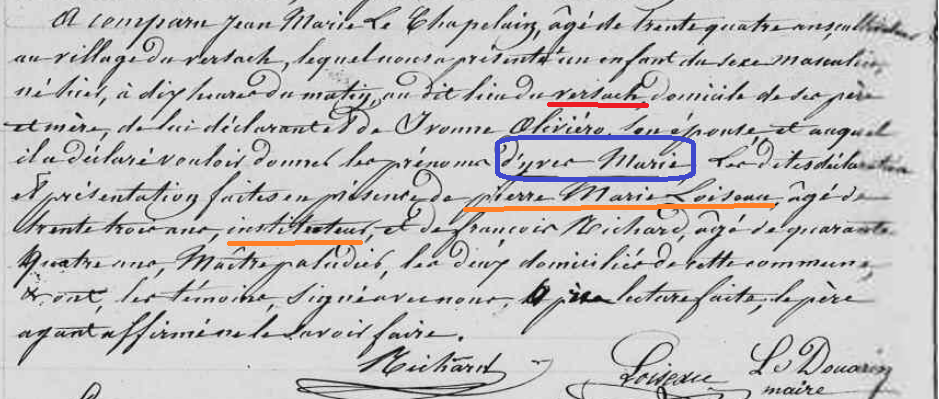 A comparu Jean Marie Le Chapelain, âgé de trente quatre ans, cultivateur
au village du versach, lequel nous a présenté un enfant du sexe masculin,
né hier, à dix heures du matin, au dit lieu du versach, domicile de ses père
et mère, de lui déclarant & de Yvonne Oliviéro, son épouse, et auquel
il a déclaré vouloir donner les prénoms d'yves Marie. Les dites déclaration
et présentation faites en présence de pierre Marie Loiseau, âgé de
trente trois ans, instituteur, et de françois Richard, âgé de quarante
quatre ans, Maître paludier, les deux domiciliés de cette commune,
& ont, les témoins, signé avec nous, Après lecture faite, le père
ayant affirmé ne le savoir faire.
Richard Loiseau Le Douarin
maire